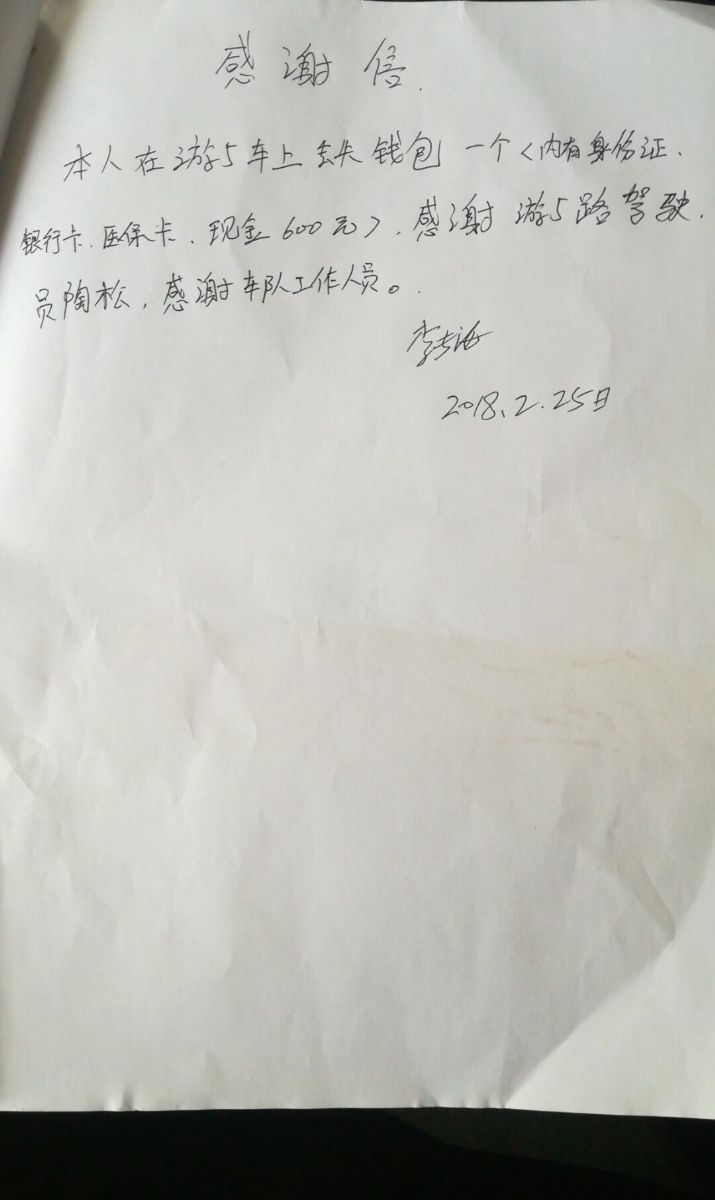 感谢信.
本人在游5车上丢失钱包一个<内有身份证、
银行卡、医保卡、现金600元>,感谢游5路驾驶
员陶松,感谢车队工作人员。
2018.2.25日